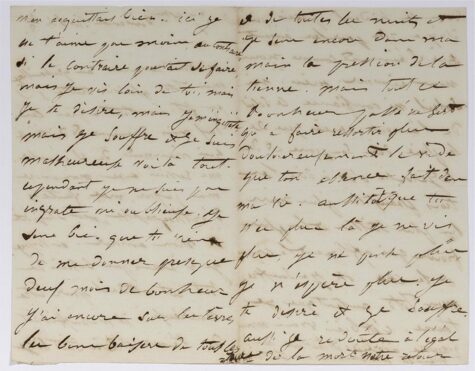 m'en acquittais bien. ici je
ne t'aime pas moins au contraire
si le contraire pouvait se faire
mais je vis loin de toi, mais
je te désire, mais je m'inquiète
mais je souffre et je suis
malheureuse voilà tout.
cependant je ne suis pas
ingrate ni oublieuse. je
sens bien que tu viens
de me donner presque
deux mois de bonheur
j'ai encore sur les lèvres
les bons baisers de tous les
et de toutes les nuits et
je sens encore dans ma
main la pression de la
tienne. mais tout ce
bonheur passé ne fait
qu'à faire ressortir plus
douloureusement le vide
que ton absence fait dans
ma vie. aussitôt que tu
n'es plus là je ne vis
plus je ne pense plus
je n'espère plus. je
te désire et je souffre.
aussi je redoute à l'égal
de la mort notre retour